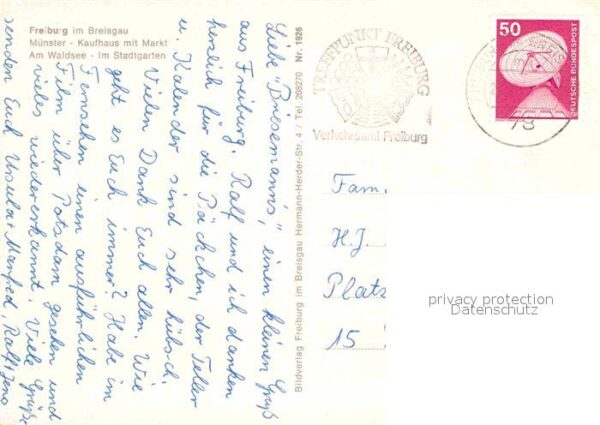 Freiburg im Breisgau
Münster - Kaufhaus mit Markt
Am Waldsee - Im Stadtgarten
Liebe "Briesemann's", einen kleinen Gruß
aus Freiburg. Ralf und ich danken
herzlich für die Päckchen, der Teller
u. Kalender sind sehr hübsch.
Vielen Dank Euch allen. Wie
geht es Euch immer? Habe im
Fernsehen einen ausführlichen
Film über Potsdam gesehen und
vieles wiedererkannt. Viele Grüße
senden Euch Ursula + Manfred, Ralf + Jeno
Bildverlag Freiburg im Breisgau Hermann-Herder-Str. 4 / Tel. 208270 Nr. 1926
TREFFPUNKT FREIBURG
Verkehrsamt Freiburg
50
DEUTSCHE BUNDESPOST
78
Fam.
H.J.
Platz
15
privacy protection
Datenschutz